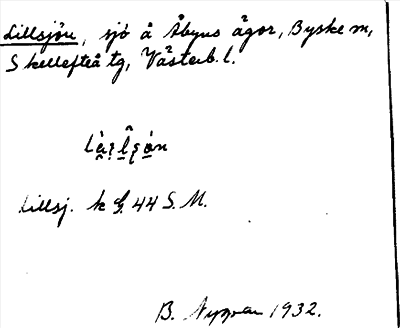 Lillsjön, sjö å Åbyns ägor, Byske m,
Skellefteå tg, Västerb. l.
Lillsj. k G. 44 S. M.
B. Nygren 1932.